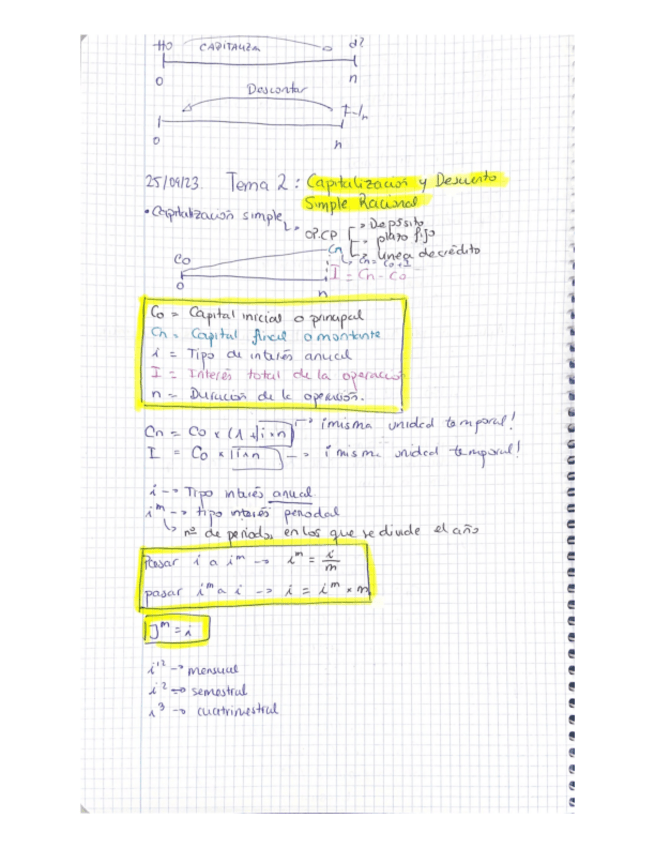 Ho CAPITALIZA d?
0 n
Descontar
0 n
25/09/23. Tema 2: Capitalización y Descuento
Simple Racional
• Capitalización simple
OP.CP [ -> Depósito
-> plazo fijo
-> línea de crédito
Co Cn
I = Cn - Co
0 n
Co = Capital inicial o principal
Cn = Capital final o montante
i = Tipo de interés anual
I = Interés total de la operación
n = Duración de la operación.
Cn = Co x (1 + i x n) -> ¡misma unidad temporal!
I = Co x i x n -> ¡misma unidad temporal!
i -> Tipo interés anual
i^m -> tipo interés periodal
↳ nº de periodos en los que se divide el año
Pasar i a i^m -> i^m = i/m
pasar i^m a i -> i = i^m x m
J^m = i
i^12 -> mensual
i^2 -> semestral
i^3 -> cuatrimestral